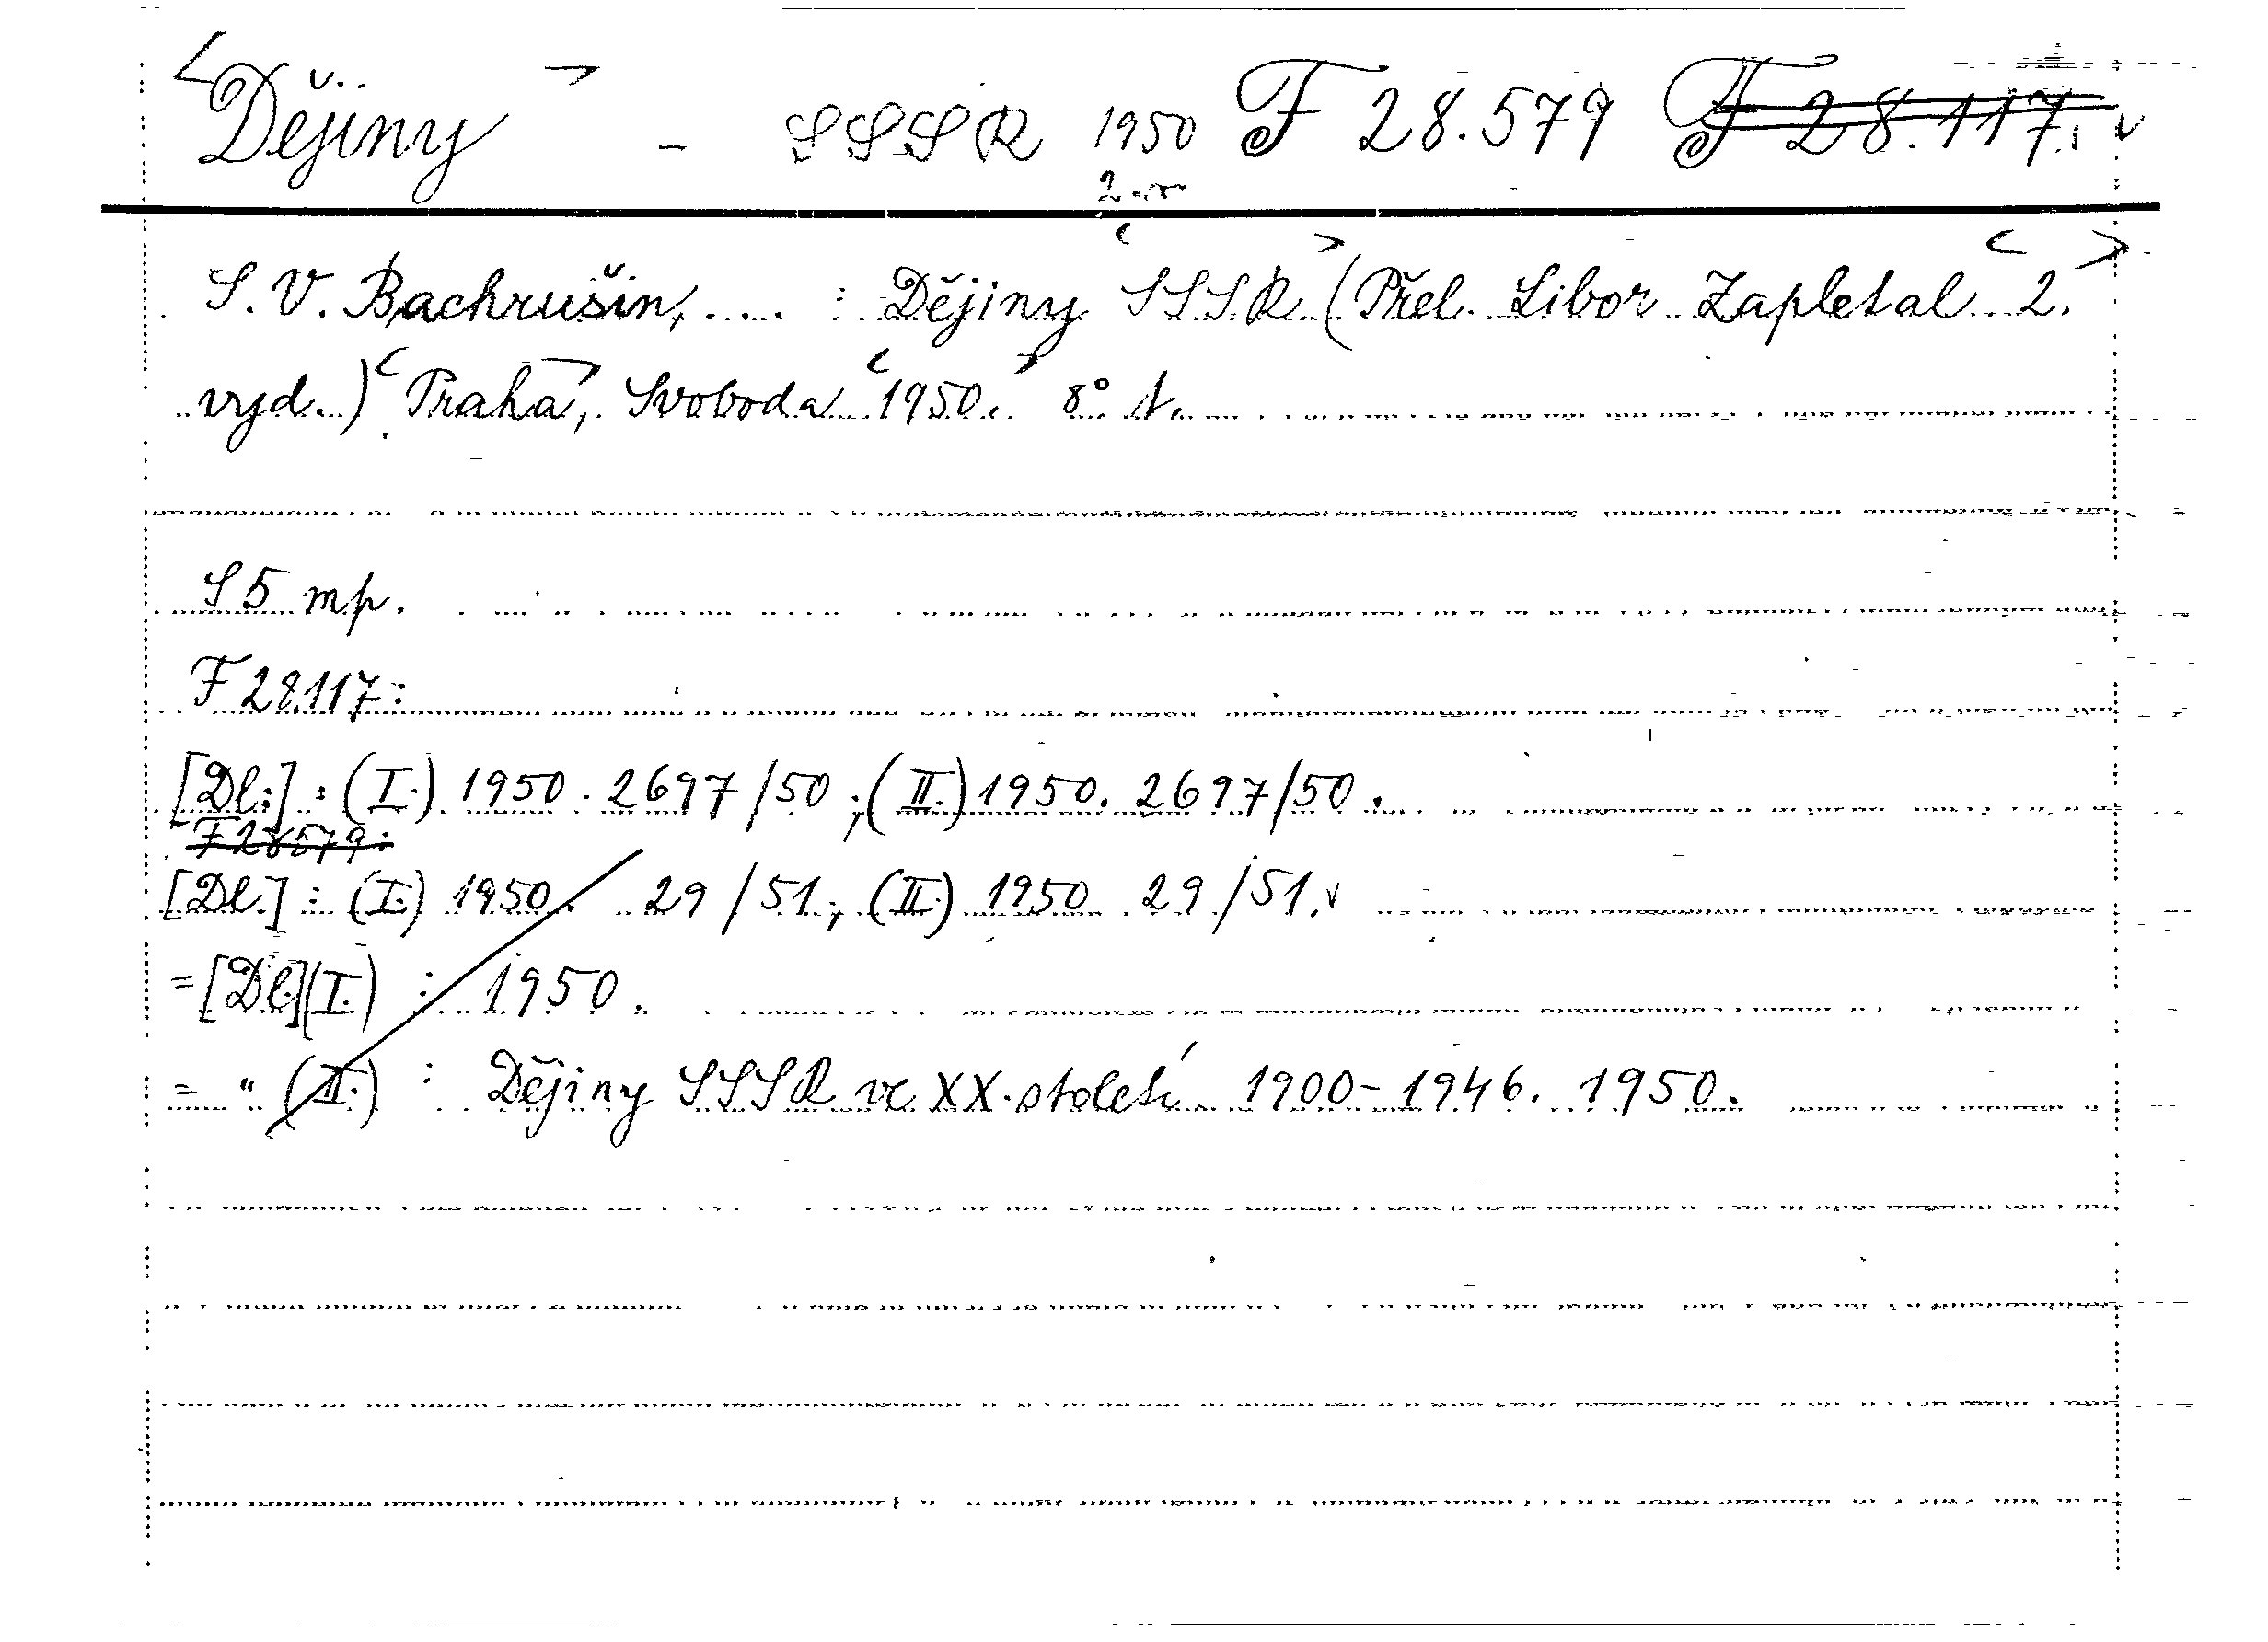 Dějiny - SSSR 1950 F 28.579 F 28.117.
S. V. Bachrušin, .... : Dějiny SSSR (Přel. Libor Zapletal 2.
vyd.) Praha, Svoboda 1950. 8°
S5 mp.
F 28.117:
[Dl.] : (I.) 1950. 2697/50 ; (II.) 1950. 2697/50.
F 28579:
[Dl.] : (I.) 1950. 29/51 ; (II.) 1950 29/51.
= [Dl.] (I.) : 1950.
= " (II.) : Dějiny SSSR ve XX. století 1900-1946. 1950.